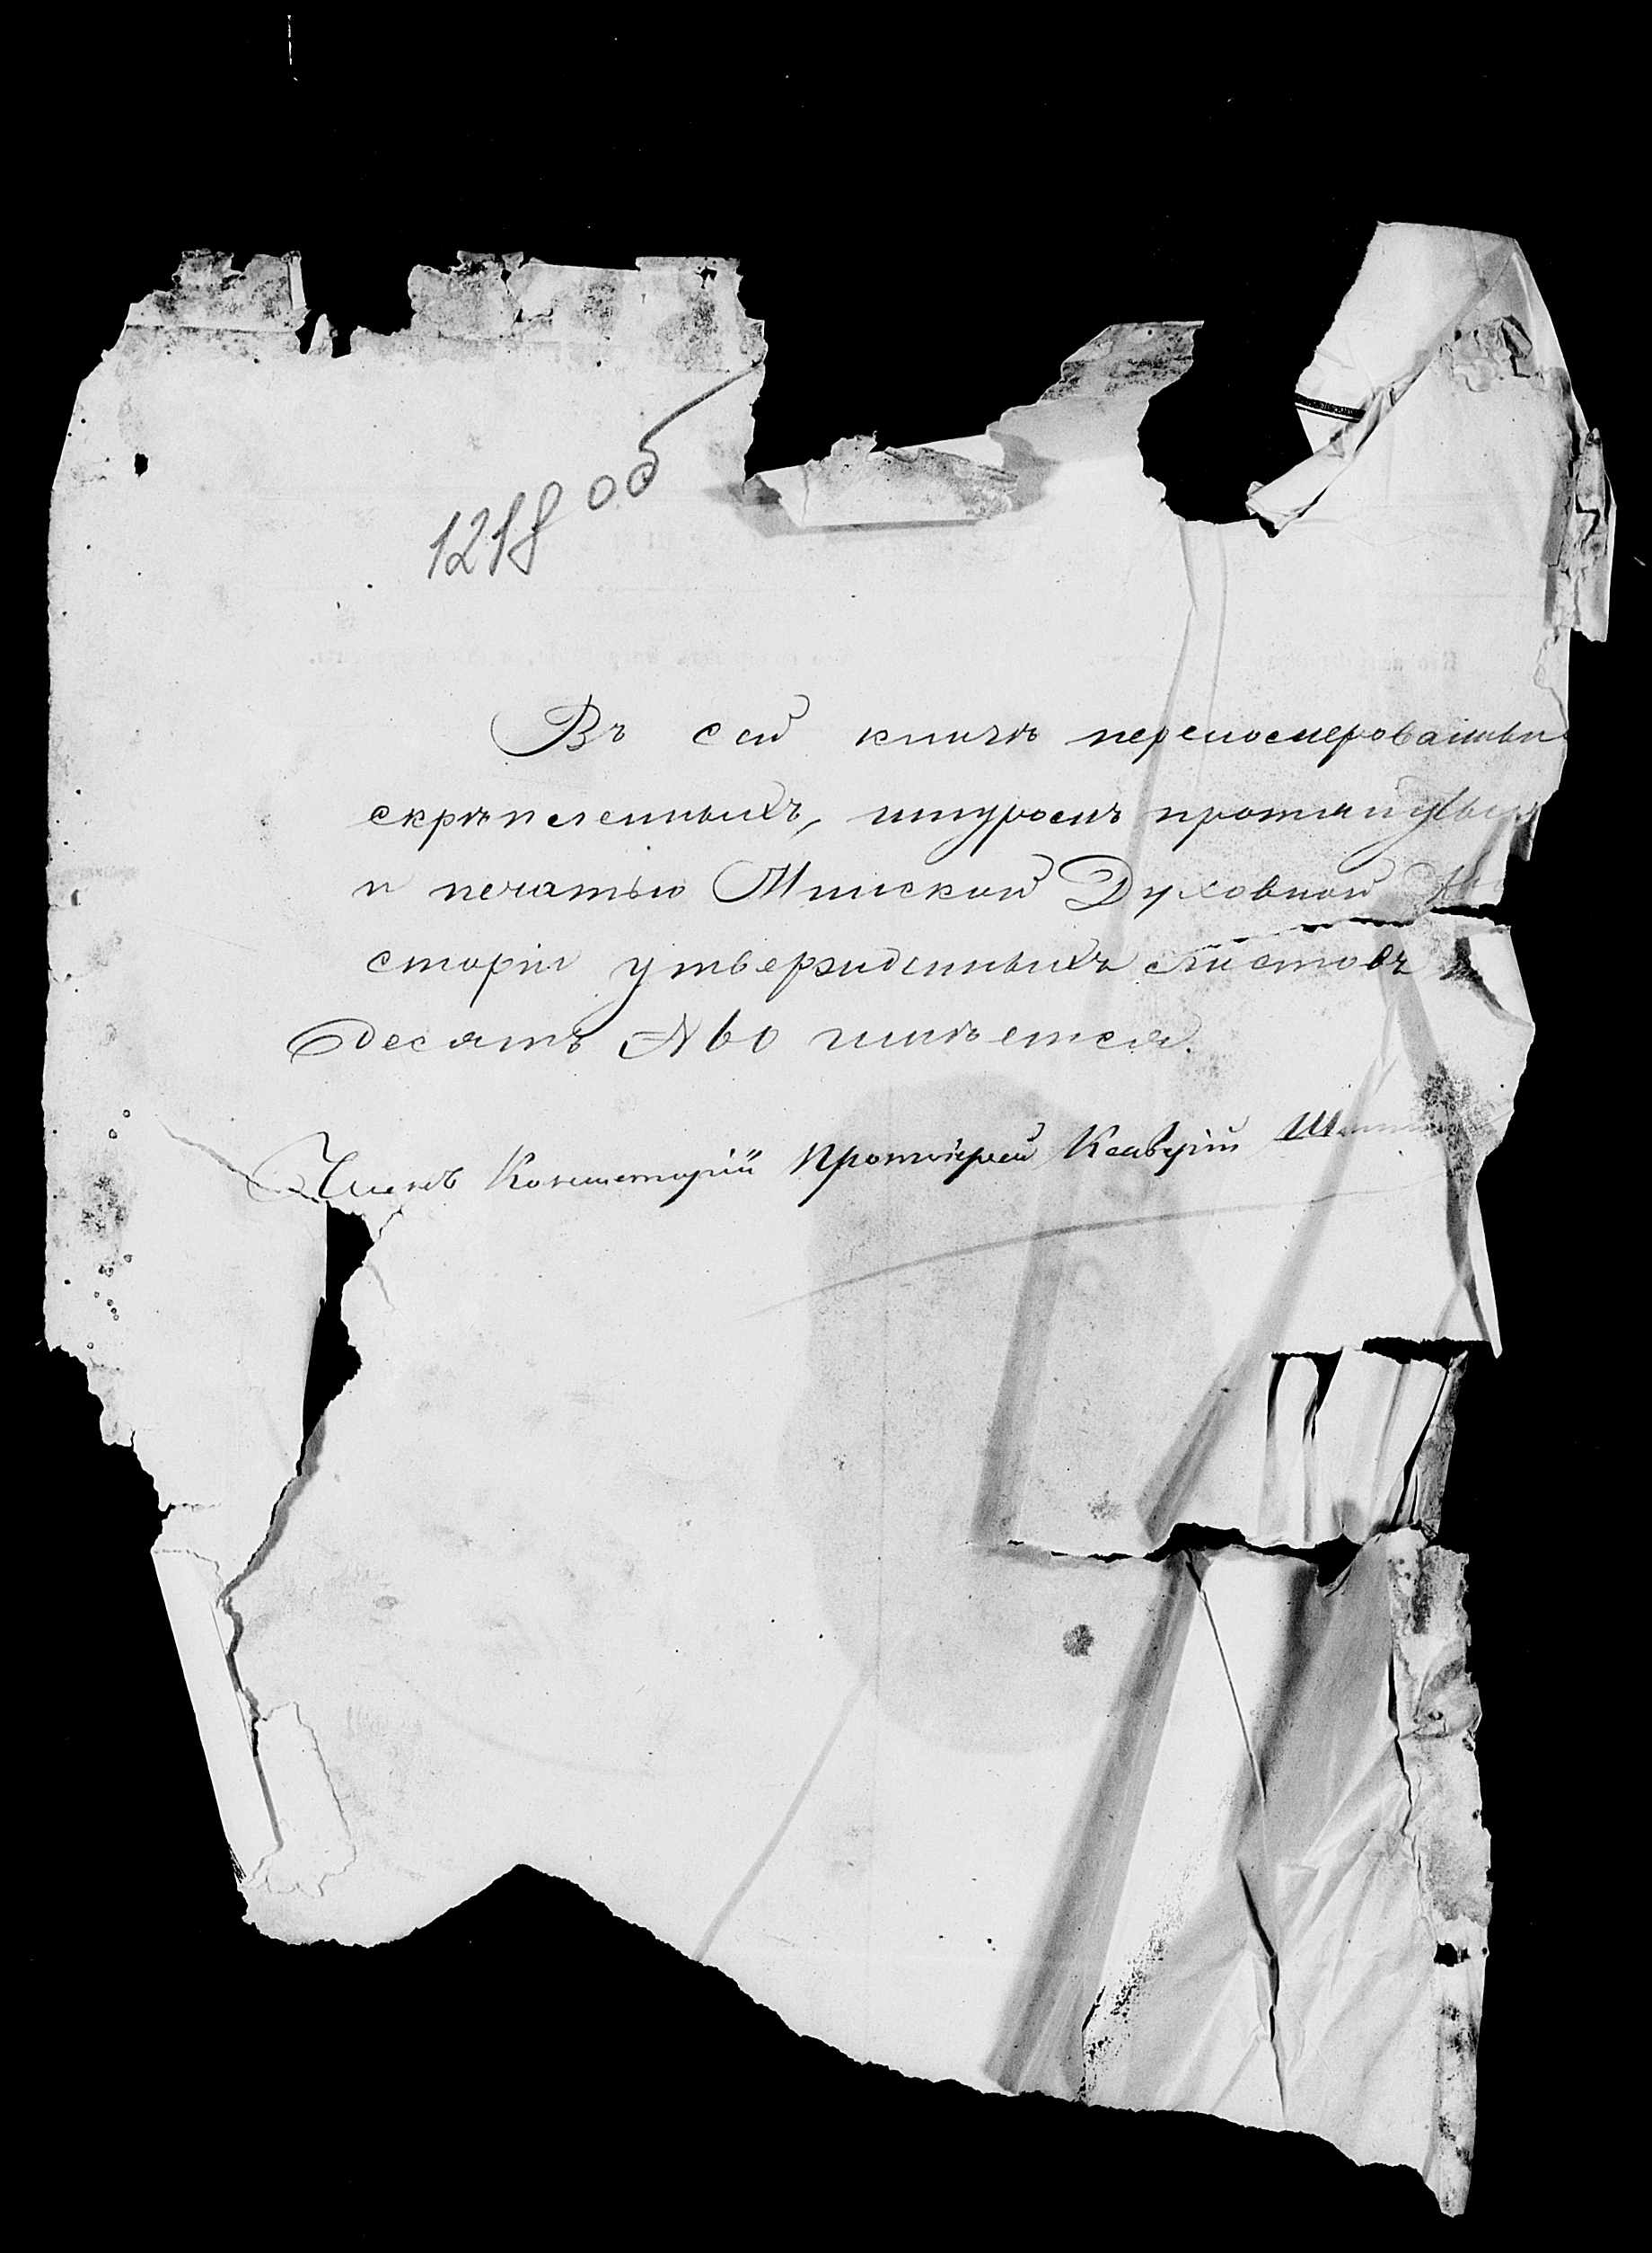 1218 об
Въ сей книгѣ перенomерованны
скрѣпленныхъ, шнуромъ протянутых
и печатью Минской Духовной Кон
сторіи утвержденныхъ листовъ
десятъ №60 имѣется.
Членъ Консисторіи Протоіерей Ксаверій